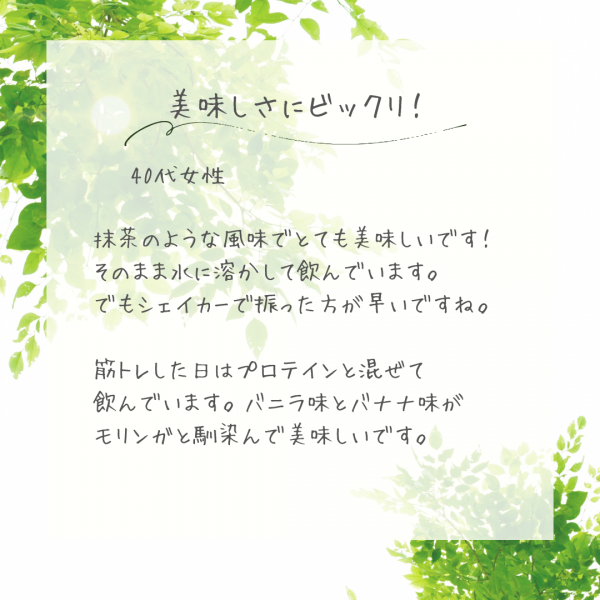 美味しさにビックリ!
40代女性
抹茶のような風味でとても美味しいです!
そのまま水に溶かして飲んでいます。
でもシェイカーで振った方が早いですね。
筋トレした日はプロテインと混ぜて
飲んでいます。バニラ味とバナナ味が
モリンガと馴染んで美味しいです。